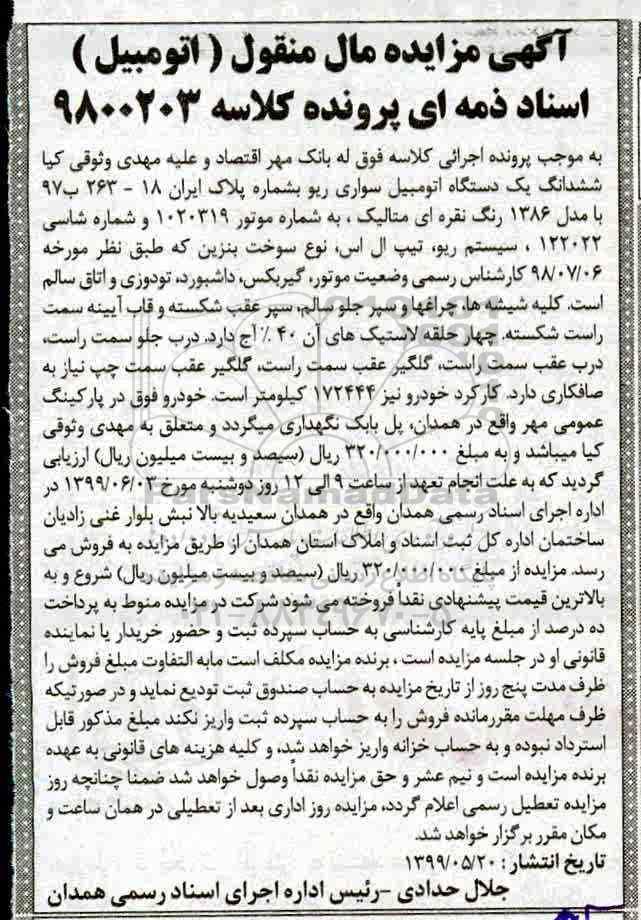 آگهی مزایده مال منقول ( اتومبیل )
اسناد ذمه ای پرونده کلاسه ۹۸۰۰۲۰۳
به موجب پرونده اجرائی کلاسه فوق له بانک مهر اقتصاد و علیه مهدی وثوقی کیا
ششدانگ یک دستگاه اتومبیل سواری ریو بشماره پلاک ایران ۱۸ - ۲۶۳ ب۹۷
با مدل ۱۳۸۶ رنگ نقره ای متالیک ، به شماره موتور ۱۰۲۰۳۱۹ و شماره شاسی
۱۲۲۰۲۲ ، سیستم ریو، تیپ ال اس، نوع سوخت بنزین که طبق نظر مورخه
۹۸/۰۷/۰۶ کارشناس رسمی وضعیت موتور، گیربکس، داشبورد، تودوزی و اتاق سالم
است. کلیه شیشه ها، چراغها و سپر جلو سالم، سپر عقب شکسته و قاب آیینه سمت
راست شکسته. چهار حلقه لاستیک های آن ۴۰ ٪ آج دارد. درب جلو سمت راست،
درب عقب سمت راست، گلگیر عقب سمت راست، گلگیر عقب سمت چپ نیاز به
صافکاری دارد. کارکرد خودرو نیز ۱۷۲۴۴۴ کیلومتر است. خودرو فوق در پارکینگ
عمومی مهر واقع در همدان، پل بابک نگهداری میگردد و متعلق به مهدی وثوقی
کیا میباشد و به مبلغ ۳۲۰/۰۰۰/۰۰۰ ریال (سیصد و بیست میلیون ریال) ارزیابی
گردید که به علت انجام تعهد از ساعت ۹ الی ۱۲ روز دوشنبه مورخ ۱۳۹۹/۰۶/۰۳ در
اداره اجرای اسناد رسمی همدان واقع در همدان سعیدیه بالا نبش بلوار غنی زادیان
ساختمان اداره کل ثبت اسناد و املاک استان همدان از طریق مزایده به فروش می
رسد. مزایده از مبلغ ۳۲۰/۰۰۰/۰۰۰ ریال (سیصد و بیست میلیون ریال) شروع و به
بالاترین قیمت پیشنهادی نقدا فروخته می شود شرکت در مزایده منوط به پرداخت
ده درصد از مبلغ پایه کارشناسی به حساب سپرده ثبت و حضور خریدار یا نماینده
قانونی او در جلسه مزایده است ، برنده مزایده مکلف است مابه التفاوت مبلغ فروش را
ظرف مدت پنج روز از تاریخ مزایده به حساب صندوق ثبت تودیع نماید و در صورتیکه
ظرف مهلت مقرر مانده فروش را به حساب سپرده ثبت واریز نکند مبلغ مذکور قابل
استرداد نبوده و به حساب خزانه واریز خواهد شد، و کلیه هزینه های قانونی به عهده
برنده مزایده است و نیم عشر و حق مزایده نقداً وصول خواهد شد ضمنا چنانچه روز
مزایده تعطیل رسمی اعلام گردد، مزایده روز اداری بعد از تعطیلی در همان ساعت و
مکان مقرر برگزار خواهد شد.
تاریخ انتشار : ۱۳۹۹/۰۵/۲۰
جلال حدادی -رئیس اداره اجرای اسناد رسمی همدان